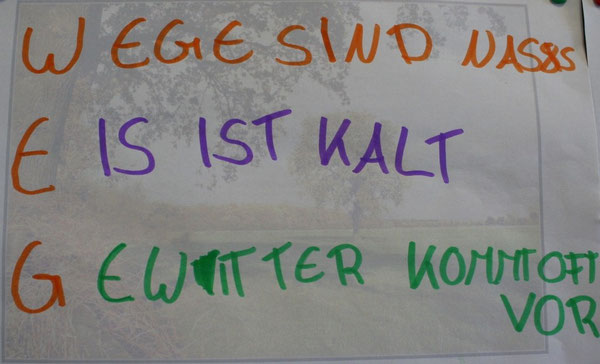 WEGE SIND NASSS
EIS IST KALT
GEWITTER KOMMT OFT
VOR